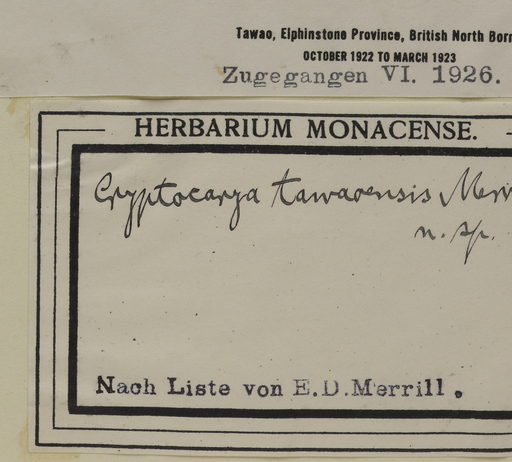 Tawao, Elphinstone Province, British North Born
OCTOBER 1922 TO MARCH 1923
Zugegangen VI. 1926.
HERBARIUM MONACENSE.
Cryptocarya tawaoensis Merr
n. sp.
Nach Liste von E.D.Merrill.